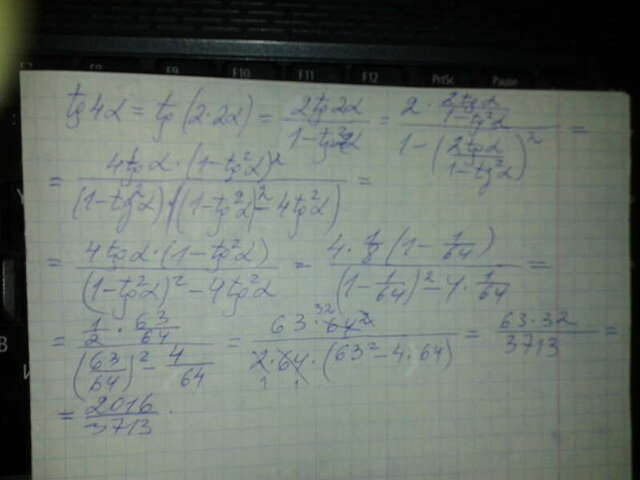 F9 F10 F11 F12 PrtSc Pause
tg4α = tg(2·2α) = 2tg2α / (1-tg²2α) = 2 · (2tgα / (1-tg²α)) / (1-(2tgα / (1-tg²α))²) =
= 4tgα · (1-tg²α)² / ((1-tg²α)·((1-tg²α)²-4tg²α)) =
= 4tgα·(1-tg²α) / ((1-tg²α)²-4tg²α) = 4·1/8(1-1/64) / ((1-1/64)²-4·1/64) =
= (1/2 · 63/64) / ((63/64)²-4/64) = 63·64² / (2·64·(63²-4·64)) = 63·32 / 3713 =
= 2016 / 3713.